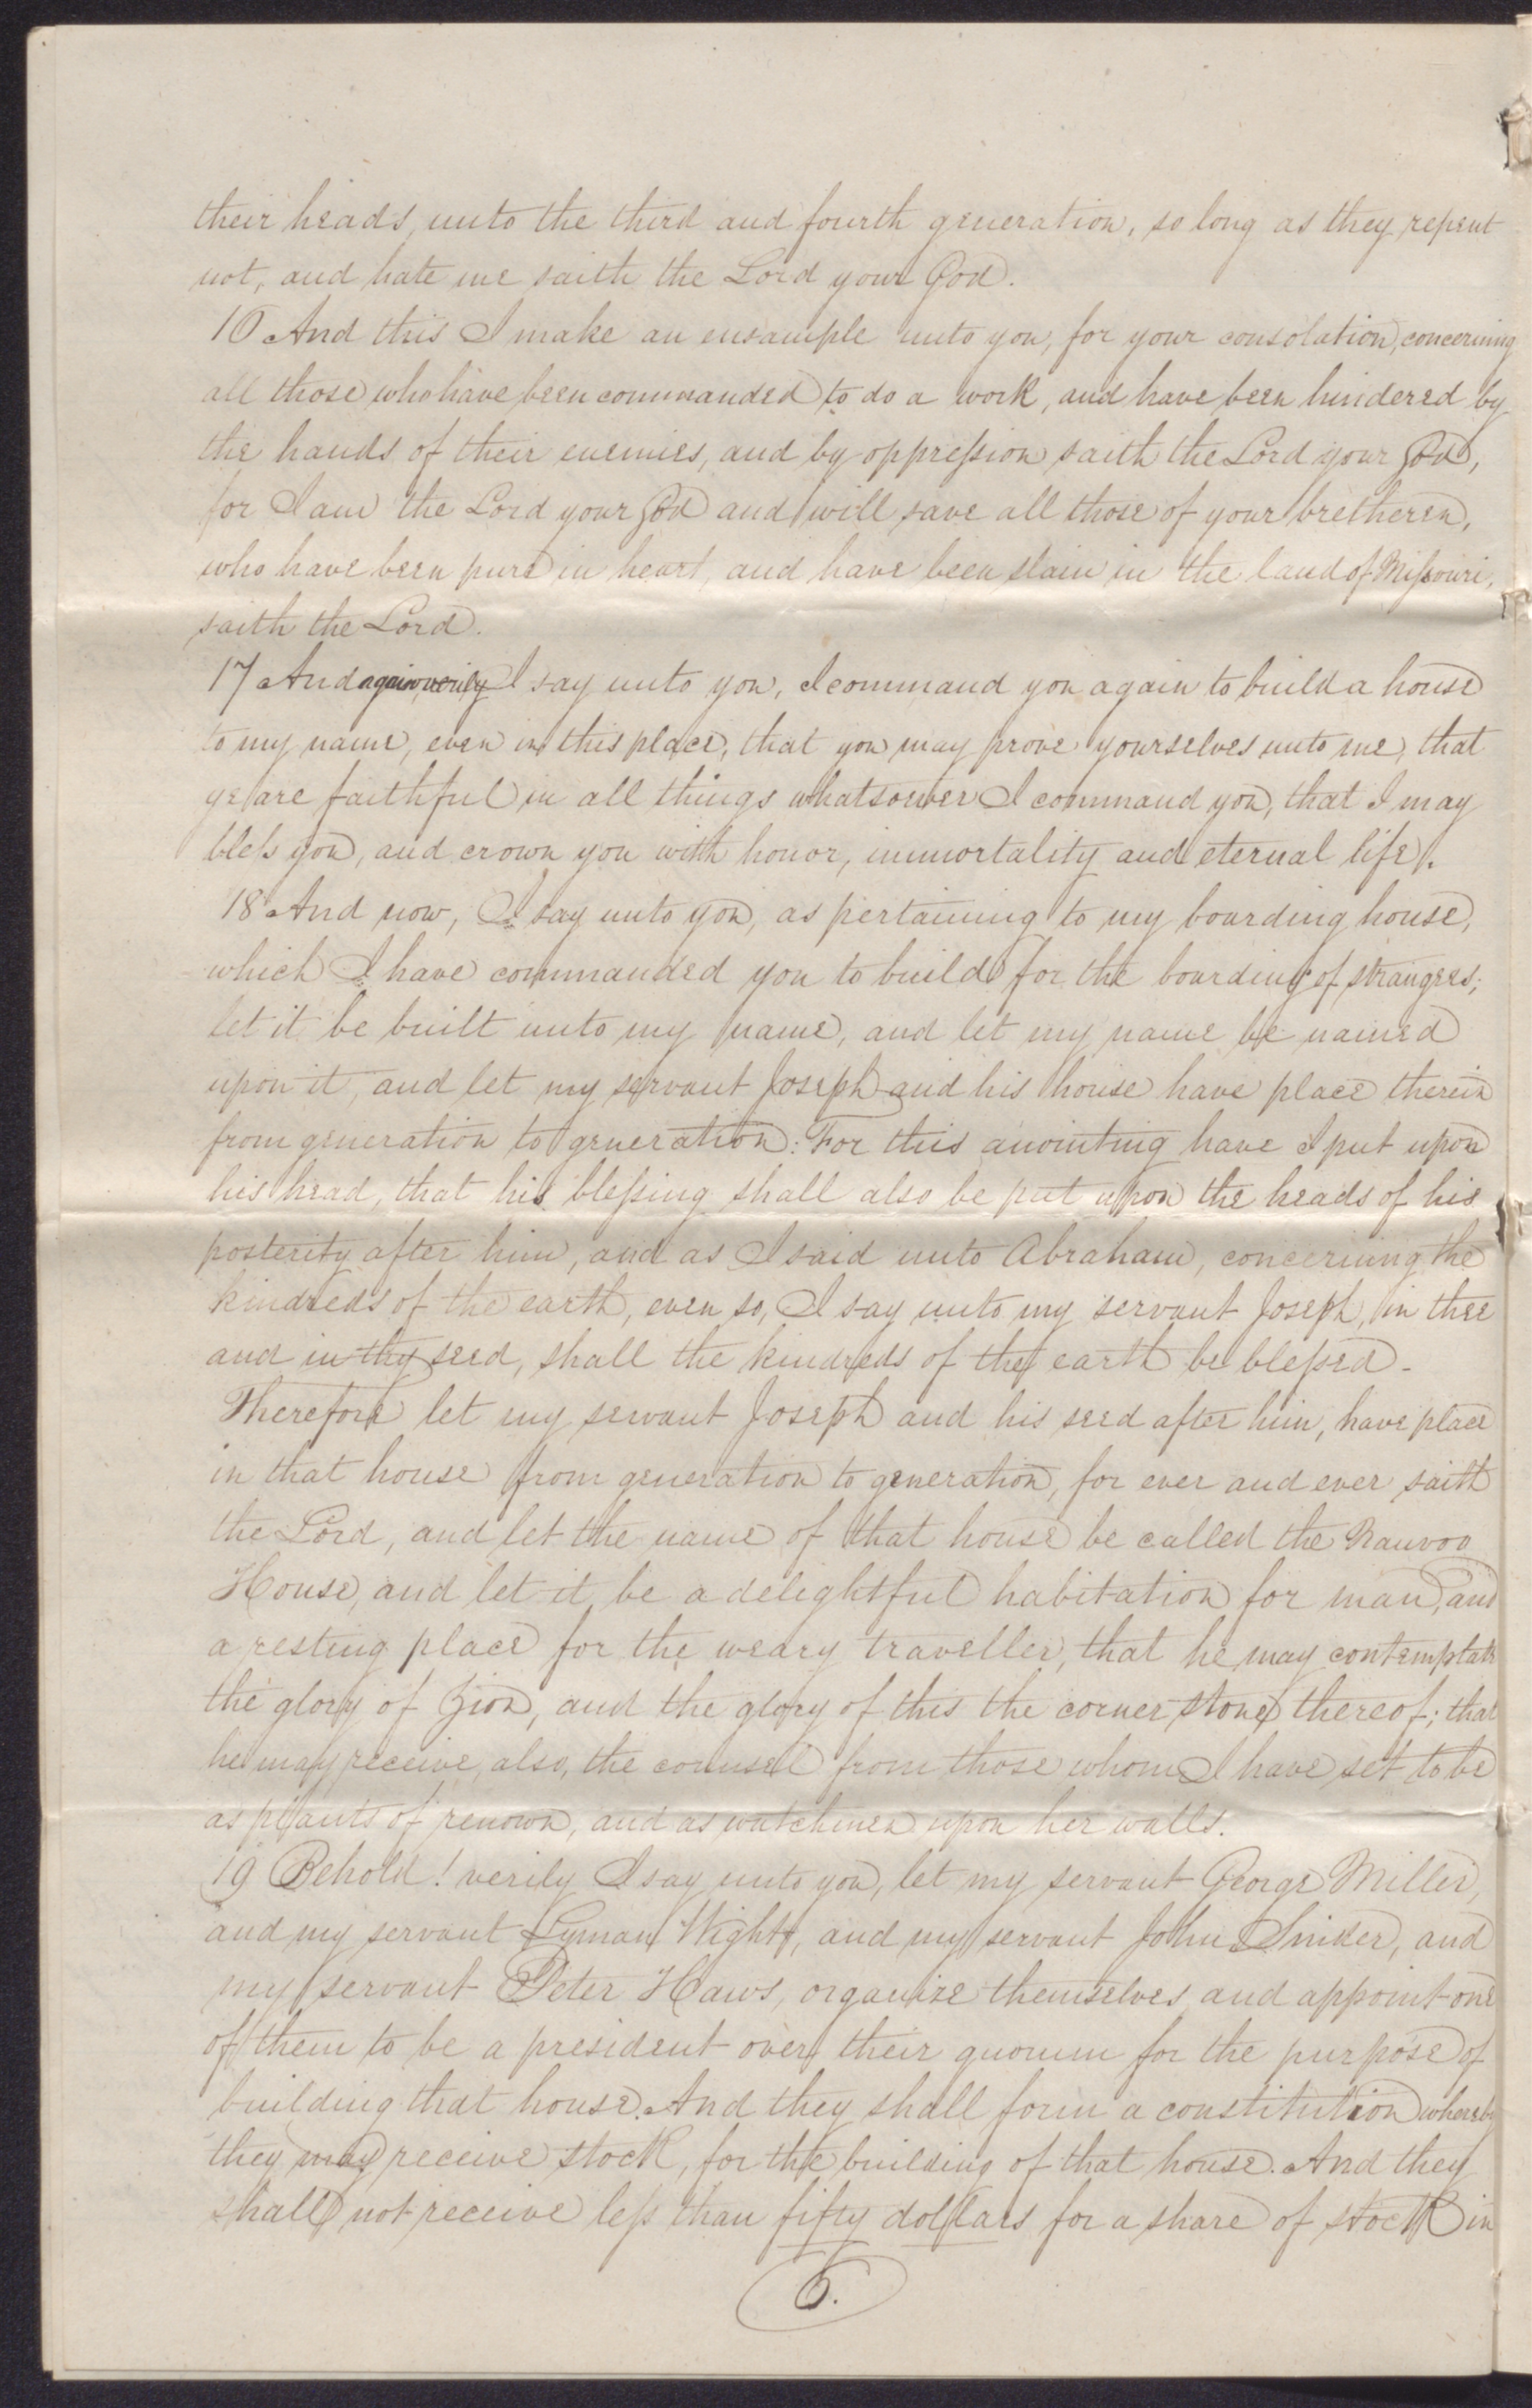 their heads, unto the third and fourth generation, so long as they repent
not, and hate me saith the Lord your God.
16 And this I make an ensample unto you, for your consolation, concerning
all those who have been commanded to do a work, and have been hindered by
the hands of their enemies, and by oppression saith the Lord your God,
for I am the Lord your God and will save all those of your bretheren,
who have been pure in heart, and have been slain in the land of Missouri,
saith the Lord.
17 And again, verily I say unto you, I command you again to build a house
to my name, even in this place, that you may prove yourselves unto me, that
ye are faithful in all things whatsoever I command you, that I may
bless you, and crown you with honor, immortality and eternal life.
18 And now, I say unto you, as pertaining to my boarding house,
which I have commanded you to build for the boarding of strangers;
let it be built unto my name, and let my name be named
upon it, and let my servant Joseph and his house have place therein
from generation to generation: For this anointing have I put upon
his head, that his blessing shall also be put upon the heads of his
posterity after him, and as I said unto Abraham, concerning the
kindreds of the earth, even so, I say unto my servant Joseph, in thee
and in thy seed, shall the kindreds of the earth be blessed-
Therefore let my servant Joseph and his seed after him, have place
in that house from generation to generation, for ever and ever saith
the Lord, and let the name of that house be called the Nauvoo
House, and let it be a delightful habitation for man, and
a resting place for the weary traveller, that he may contemplate
the glory of Zion, and the glory of this the corner stone thereof; that
he may receive, also, the counsel from those whom I have set to be
as plants of renown, and as watchmen upon her walls.
19 Behold! verily I say unto you, let my servant George Miller,
and my servant Lyman Wight, and my servant John Snider, and
my servant Peter Haws, organize themselves, and appoint one
of them to be a president over their quorum for the purpose of
building that house. And they shall form a constitution whereby
they may receive stock, for the building of that house. And they
shall not receive less than fifty dollars for a share of stock in
6.